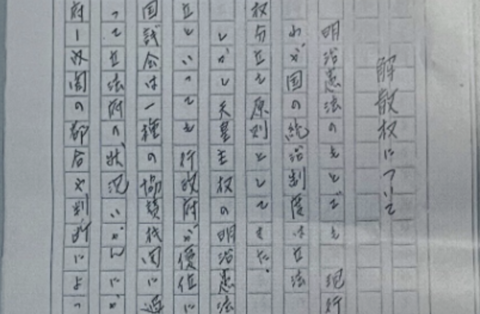 解散权について
明治憲法のもとでも 現行
わが国の統治制度は立法
权分立を原則としてきた。
しかし天皇主权の明治憲法
立といっても行政府が優位に
国議会は一種の協賛机関に過
って立法府の状況いかんにか
府ー内閣の都合や判断によっ